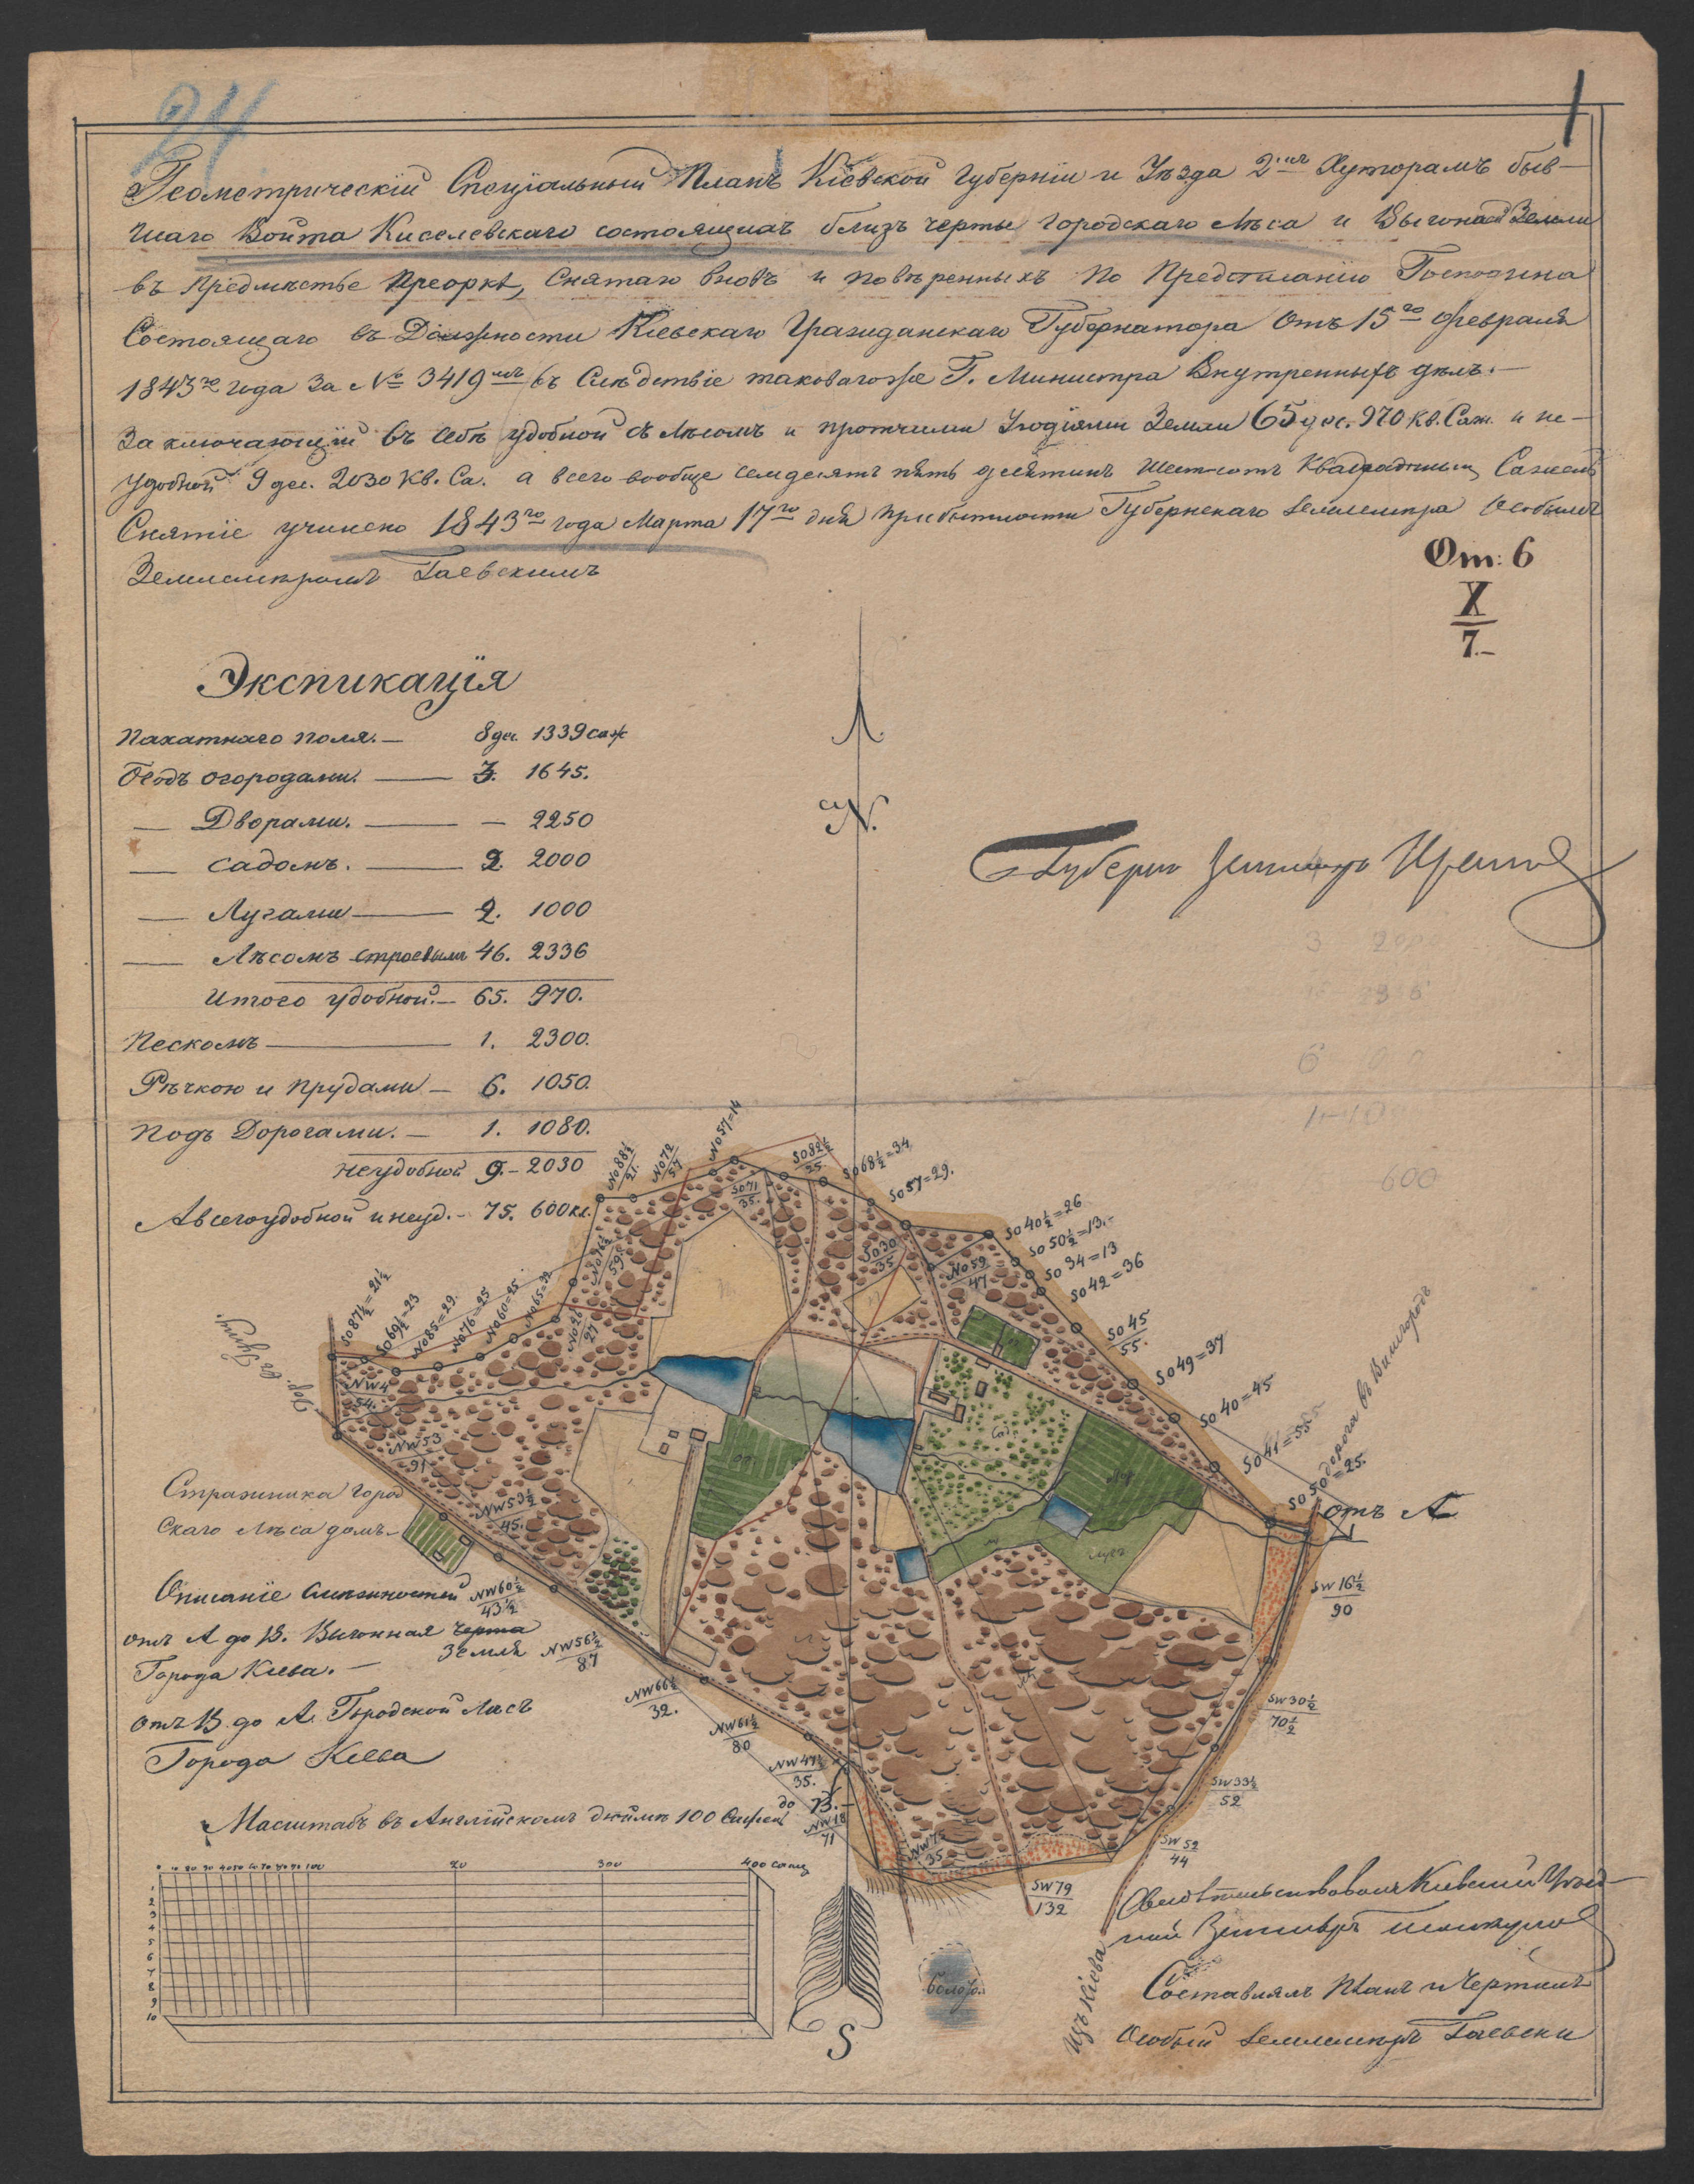 24
1
Геометрическій Спеціальный Планъ Кіевской Губерніи и Уѣзда 2мъ Хуторамъ быв-
шаго Войта Киселевскаго состоящимъ близъ черты городскаго лѣса и Выгонной Земли
въ предмѣстье Преоркѣ, Снятаго вновь и повѣренныхъ По Предписанію Господина
Состоящаго въ Должности Кіевскаго Гражданскаго Губернатора Отъ 15го Февраля
1843го года За № 3419мъ въ Слѣдствіе таковагоже Г. Министра Внутреннихъ дѣлъ.—
Заключающій въ себѣ удобной съ Лѣсомъ и протчими Угодіями Земли 65 дес. 970 кв. Саж. и не-
удобной 9 дес. 2030 Кв. Са. а всего вообще семдесятъ пять десятинъ шестьсотъ Квадратныхъ Сажень
Снятіе учинено 1843го года Марта 17го дня при бытности Губернскаго Землемѣра Особымъ
Землемѣромъ Гаевскимъ
От: 6
X
7.—
Экспикація
Пахатнаго поля.— 8 дес. 1339 саж
Подъ огородами. — 3. 1645.
— Дворами. — — 2250
— садомъ. — 2. 2000
— Лугами — 2. 1000
— Лѣсомъ строевымъ 46. 2336
Итого удобной.— 65. 970.
Пескомъ — 1. 2300.
Рѣчкою и прудами — 6. 1050.
Подъ Дорогами. — 1. 1080.
неудобной 9.— 2030
А всего удобной и неуд.— 75. 600 кв.
N.
Губерн Землемѣръ
600
NO 88½
21.
NO 72
57
NO 57=14
SO 82½
25
SO 68½=34
SO 57=29.
SO 71
35.
SO 40½=26
SO 50½=13.
SO 34=13
SO 42=36
SO 30
35
NO 59
47
SO 45
55.
SO 49=37
SO 40=45
SO 41=55
SO 50=25.
дорога въ Вышгородъ
отъ А
SO 87½=21½
SO 69½=23
NO 85=29.
NO 76=25
NO 60=25
NO 65=32
NO 26
27
NO 16½
59
NW 4
54.
NW 53
91
NW 53½
45.
Сад.
ог.
лугъ
Стражника город
скаго лѣса домъ
Описаніе смежностей
отъ А до В. Выгонная черта
земля
Города Кіева.—
отъ В до А Городской Лѣсъ
Города Кіева
NW 60½
43½
NW 56½
87
NW 66½
32.
NW 61½
80
NW 47½
35.
до В.—
NW 18
71
NW 75
35
SW 16½
90
SW 30½
70½
SW 33½
52
SW 52
44
SW 79
132
Масштабъ въ Англійскомъ дюймѣ 100 Сажен
0 10 20 30 40 50 60 70 80 90 100 20 300 400 саж
1
2
3
4
5
6
7
8
9
10
S
болото.
изъ Кіева
Свидѣтельствовалъ Кіевскій Уѣзд-
ный Землемѣръ
Составлялъ Планъ и Чертилъ
Особый Землемѣръ Гаевски